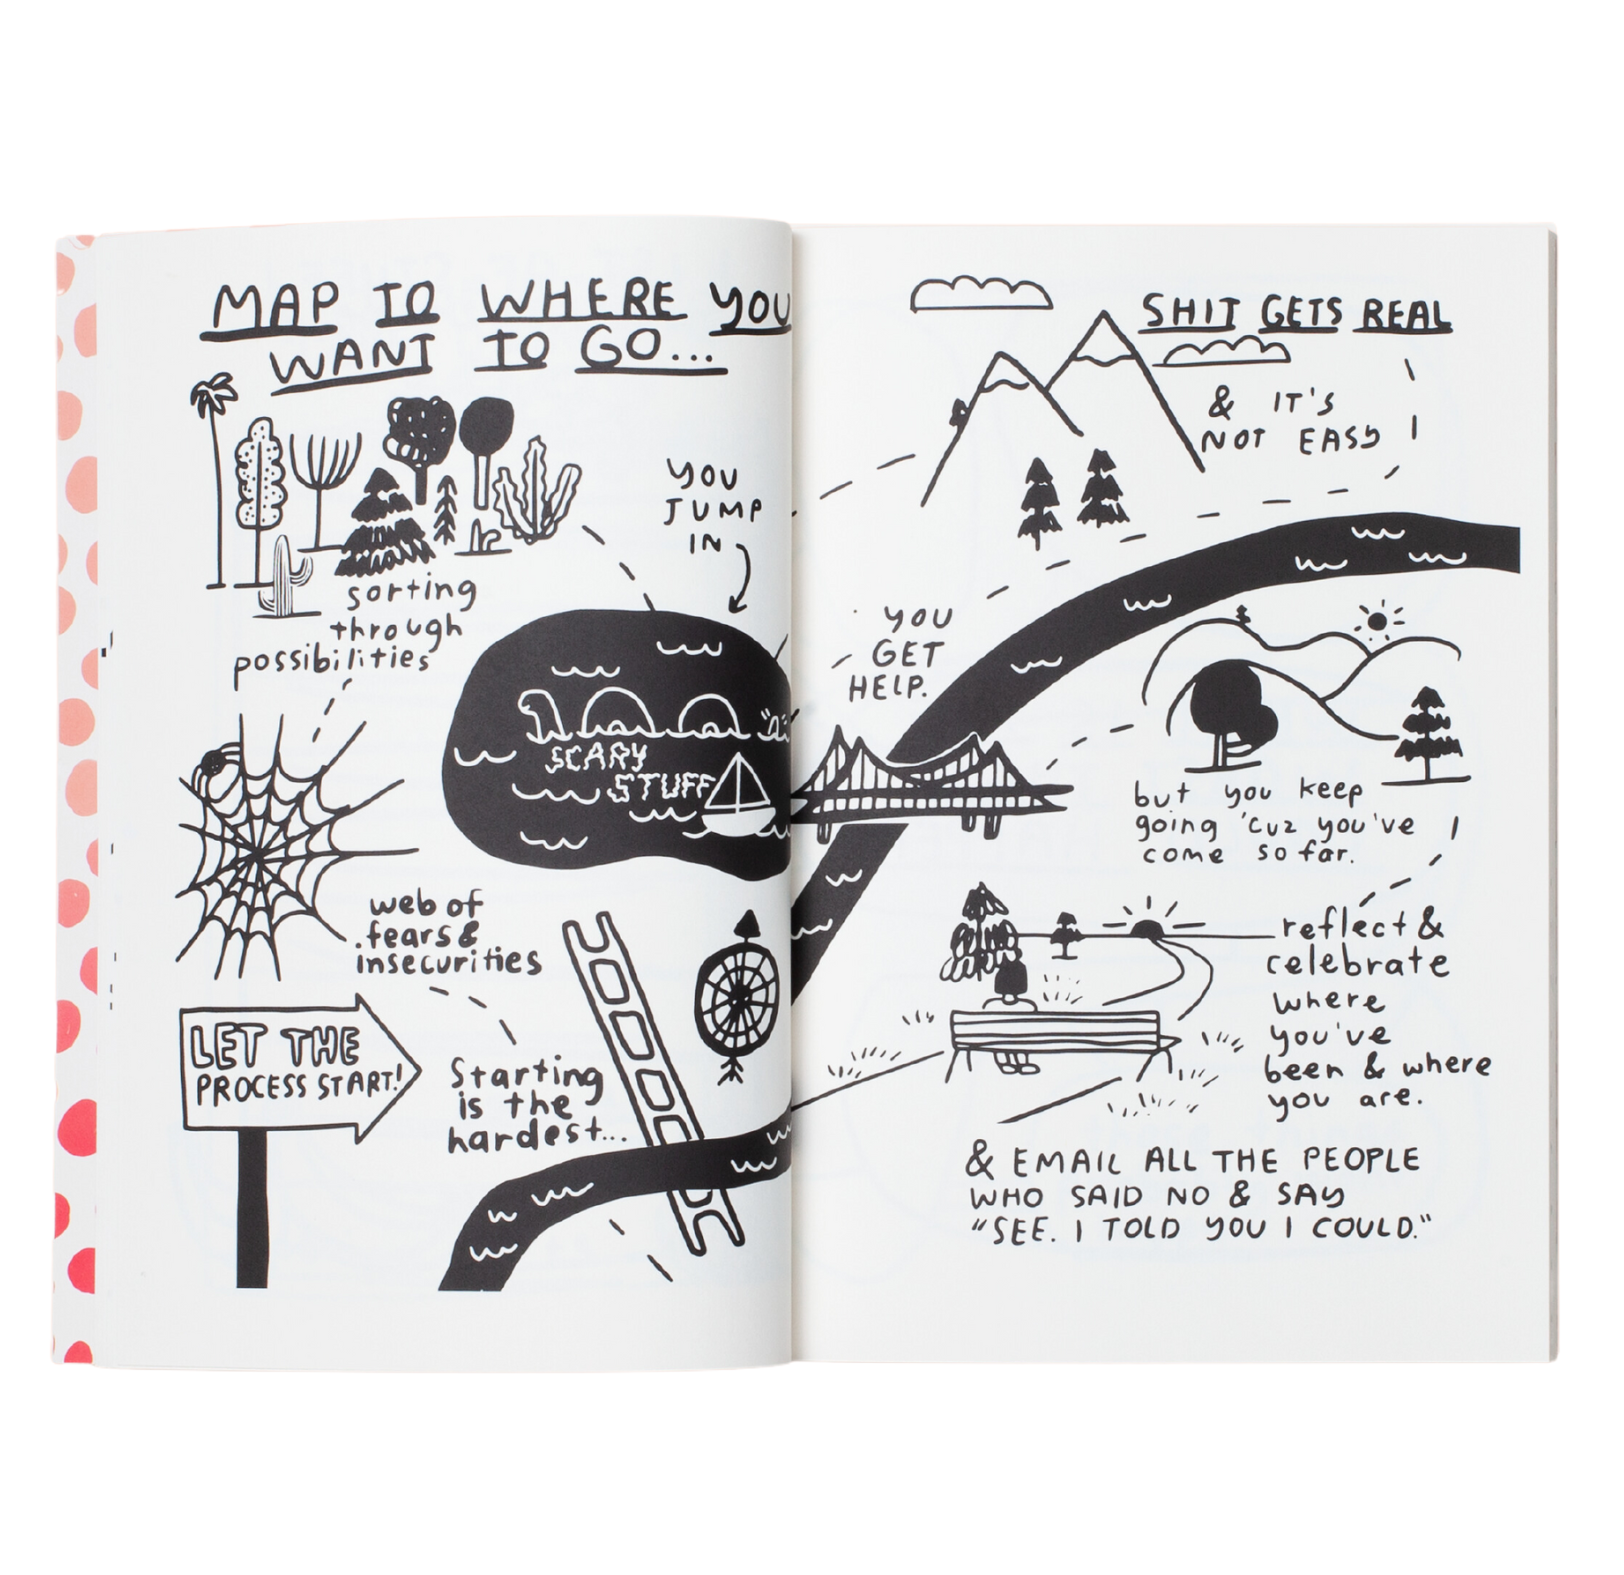 MAP TO WHERE YOU
WANT TO GO...
sorting
through
possibilities
YOU
JUMP
IN
SCARY
STUFF
web of
fears &
insecurities
LET THE
PROCESS START!
Starting
is the
hardest...
SHIT GETS REAL
& IT'S
NOT EASY
YOU
GET
HELP.
but you keep
going 'cuz you've
come so far.
reflect &
celebrate
where
you've
been & where
you are.
& EMAIL ALL THE PEOPLE
WHO SAID NO & SAY
"SEE. I TOLD YOU I COULD."